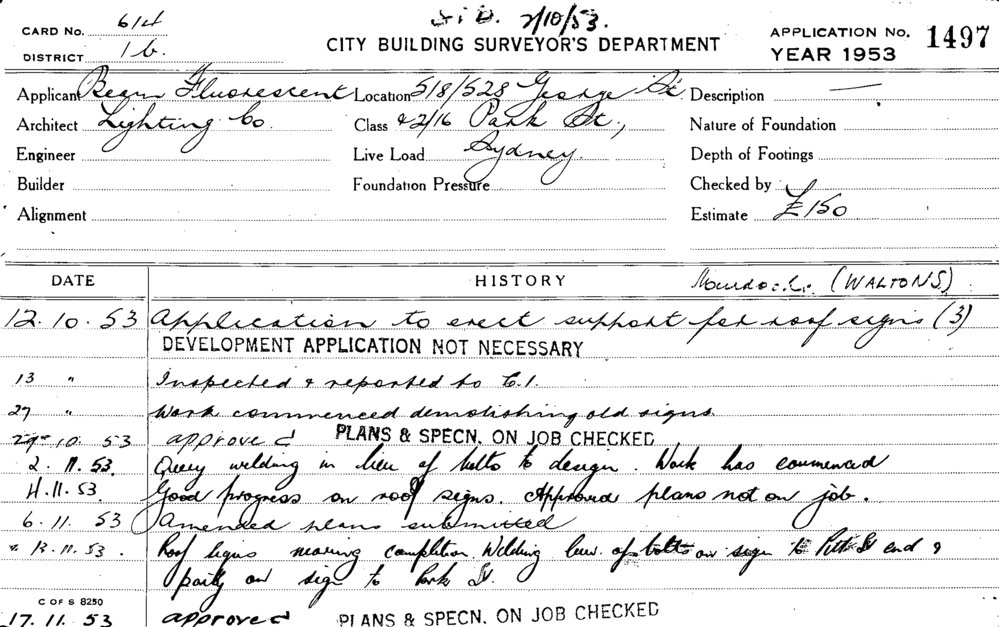 S.i.D. 2/10/53.
CARD No. 614
CITY BUILDING SURVEYOR'S DEPARTMENT
APPLICATION No. 1497
DISTRICT 1b.
YEAR 1953
Applicant Beam Fluorescent Location 518/528 George St Description —
Architect Lighting Co Class & 2/16 Park St., Nature of Foundation
Engineer Live Load Sydney. Depth of Footings
Builder Foundation Pressure Checked by
Alignment Estimate £150
DATE HISTORY (WALTONS)
12.10.53 Application to erect support for roof signs (3)
DEVELOPMENT APPLICATION NOT NECESSARY
13 " Inspected & reported to C.I.
27 " Work commenced demolishing old signs
29.10.53 approved PLANS & SPECN. ON JOB CHECKED
2.11.53. Query welding in lieu of bolts to design. Work has commenced
4.11.53. Good progress on roof signs. Approved plans not on job.
6.11.53 Amended plans submitted
13.11.53. Roof signs nearing completion. Welding lieu of bolts on sign to Pitt St end &
partly on sign to Park St.
C OF S 8250
17.11.53 approved PLANS & SPECN. ON JOB CHECKED